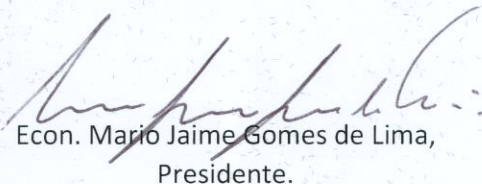 Econ. Mario Jaime Gomes de Lima,
Presidente.